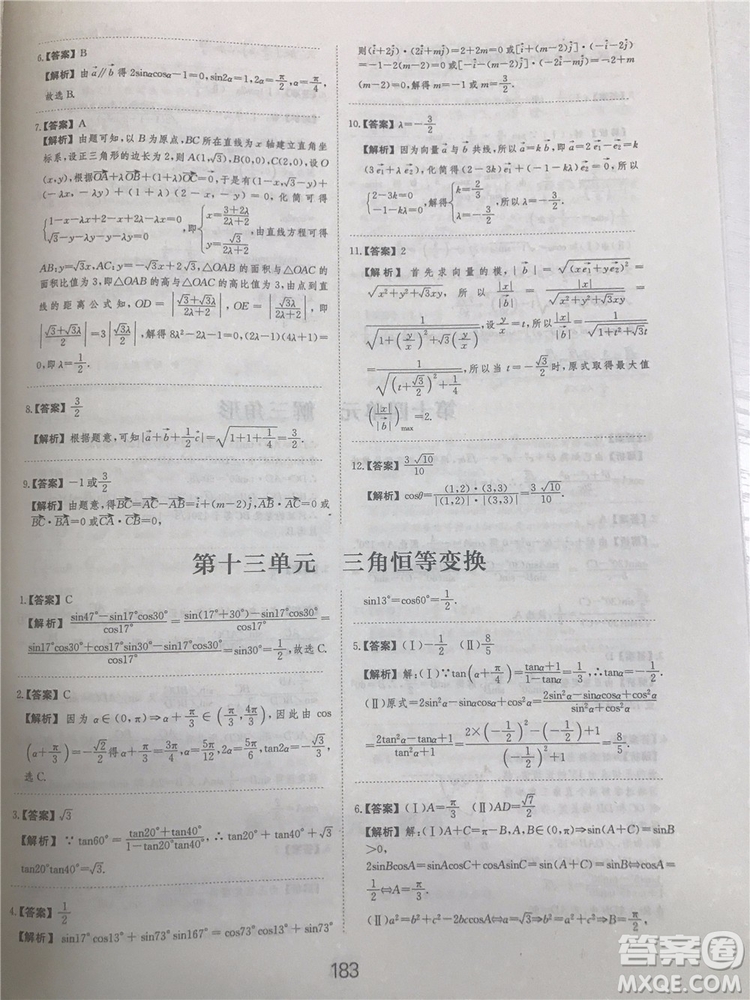 6.【答案】B
【解析】由 a⃗∥b⃗ 得 2sinαcosα−1=0,sin2α=1,2α=π/2,α=π/4,
故选 B.
7.【答案】A
【解析】由题可知,以 B 为原点,BC所在直线为 x 轴建立直角坐
标系,设正三角形的边长为 2,则 A(1,√3),B(0,0),C(2,0),设 O
(x,y),根据OA⃗+λOB⃗+(1+λ)OC⃗=0,于是有(1−x,√3−y)+λ
(−x,−y)+(1+λ)(2−x,−y)=0,化简可得
{1−x−λx+2(1+λ)−x(1+λ)=0, √3−y−λy−y(1+λ)=0 即{x=(3+2λ)/(2λ+2), y=√3/(2λ+2) ,由直线方程可得
AB:y=√3x,AC:y=−√3x+2√3,△OAB 的面积与△OAC 的
面积比值为 3,则△OAB 的高与△OAC 的高比值为 3,由点到直
线的距离公式知,OD=|(√3+√3λ)/(2λ+2)|,OE=|√3λ/(2λ+2)|,即
|(√3+√3λ)/(2λ+2)|=3|√3λ/(2λ+2)|,解得 8λ²−2λ−1=0,(2λ−1)(4λ+1)=
0,即λ=1/2.
8.【答案】3/2
【解析】根据题意,可知|a⃗+b⃗+1/2c⃗|=√(1+1+1/4)=3/2.
9.【答案】−1 或 3/2
【解析】由题意,得BC⃗=AC⃗−AB⃗=i⃗+(m−2)j⃗,AB⃗·AC⃗=0 或
BC⃗·BA⃗=0 或CA⃗·BC⃗=0,
则(i⃗+2j⃗)·(2i⃗+mj⃗)=0 或[−i⃗−(m−2)j⃗]·(−i⃗−2j⃗)
=0 或(−2i⃗−mj⃗)·[i⃗+(m−2)j⃗]=0,解得 m=−1 或 m=3/2.
10.【答案】λ=−3/2
【解析】因为向量 a⃗ 与 b⃗ 共线,所以 a⃗=k b⃗,即 2e₁⃗−e₂⃗=k
(3e₁⃗+λe₂⃗),化简得(2−3k)e₁⃗−(1+λk)e₂⃗=0,所以
{2−3k=0, 1+λk=0 ,解得{k=2/3, λ=−3/2 ,所以λ=−3/2.
11.【答案】2
【解析】首先求向量的模,|b⃗|=√((xe₁⃗+ye₂⃗)²)=
√(x²+y²+√3xy),所以|x|/|b⃗|=|x|/√(x²+y²+√3xy)=
1/√(1+(y/x)²+√3(y/x)),设 y/x=t,所以|x|/|b⃗|=1/√(1+t²+√3t)=
1/√((t+√3/2)²+1/4),所以当 t=−√3/2时,原式取得最大值
(|x|/|b⃗|)max=2.
12.【答案】3√10/10
【解析】cosθ=(1,2)·(3,3)/|(1,2)|·|(3,3)|=3√10/10.
第十三单元 三角恒等变换
1.【答案】C
【解析】(sin47°−sin17°cos30°)/cos17°=(sin(17°+30°)−sin17°cos30°)/cos17°=
(sin17°cos30°+cos17°sin30°−sin17°cos30°)/cos17°=sin30°=1/2,故选 C.
2.【答案】C
【解析】因为 α∈(0,π)⇒α+π/3∈(π/3,4π/3),因此由 cos
(α+π/3)=−√2/2得α+π/3=3π/4,α=5π/12,2α=5π/6,tan2α=−√3/3,
选 C.
3.【答案】√3
【解析】∵tan60°=(tan20°+tan40°)/(1−tan20°tan40°)=√3,∴tan20°+tan40°+√3
tan20°tan40°=√3.
4.【答案】1/2
【解析】sin17°cos13°+sin73°sin167°=cos73°cos13°+sin73°
sin13°=cos60°=1/2.
5.【答案】(Ⅰ)−1/2 (Ⅱ)8/5
【解析】解:(Ⅰ)∵tan(α+π/4)=(tanα+1)/(1−tanα)=1/3,∴tanα=−1/2.
(Ⅱ)原式=2sin²α−sinαcosα+cos²α=(2sin²α−sinαcosα+cos²α)/(sin²α+cos²α)
=(2tan²α−tanα+1)/(tan²α+1)=(2×(−1/2)²−(−1/2)+1)/((−1/2)²+1)=8/5.
6.【答案】(Ⅰ)A=π/3 (Ⅱ)AD=√7/2
【解析】解:(Ⅰ)A+C=π−B,A,B∈(0,π)⇒sin(A+C)=sinB
>0,
2sinBcosA=sinAcosC+cosAsinC=sin(A+C)=sinB⇔cosA
=1/2⇔A=π/3.
(Ⅱ)a²=b²+c²−2bccosA⇔a=√3⇒b²=a²+c²⇒B=π/2,
183
答案圈
MXQE.COM